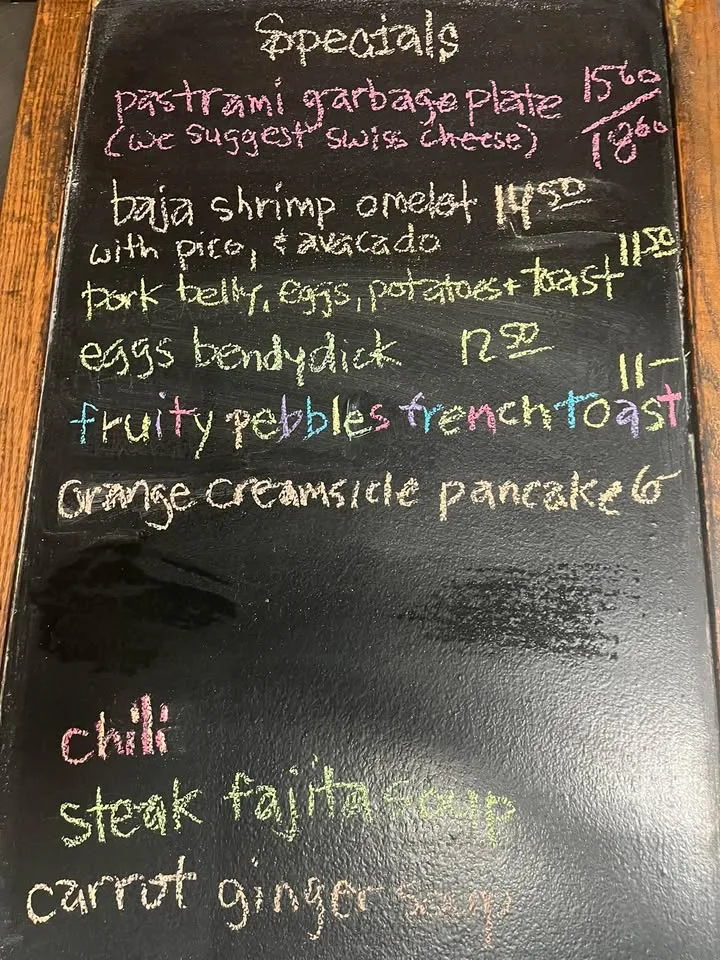 Specials
pastrami garbage plate 15⁶⁰/18⁶⁰
(we suggest swiss cheese)
baja shrimp omelot 14⁵⁰
with pico, & avacado
pork belly, eggs, potatoes + toast 11⁵⁰
eggs bendydick 12⁵⁰
fruity pebbles french toast 11-
orange creamsicle pancake 6-
chili
steak fajita soup
carrot ginger soup